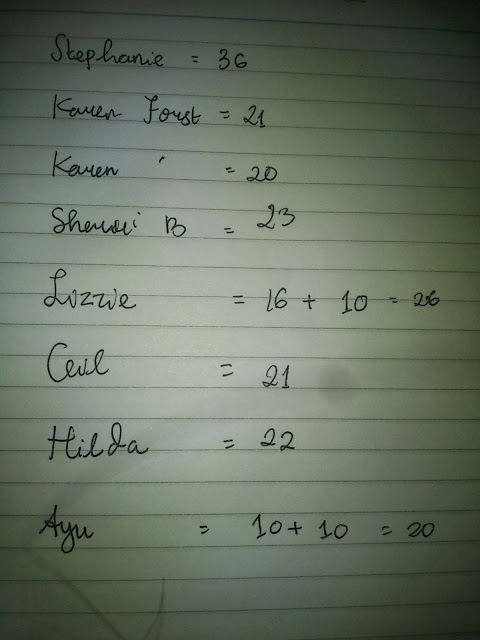 Stephanie = 36
Karen Forst = 21
Karen ' = 20
Sherri B = 23
Lizzie = 16 + 10 = 26
Cecil = 21
Hilda = 22
Ayu = 10 + 10 = 20